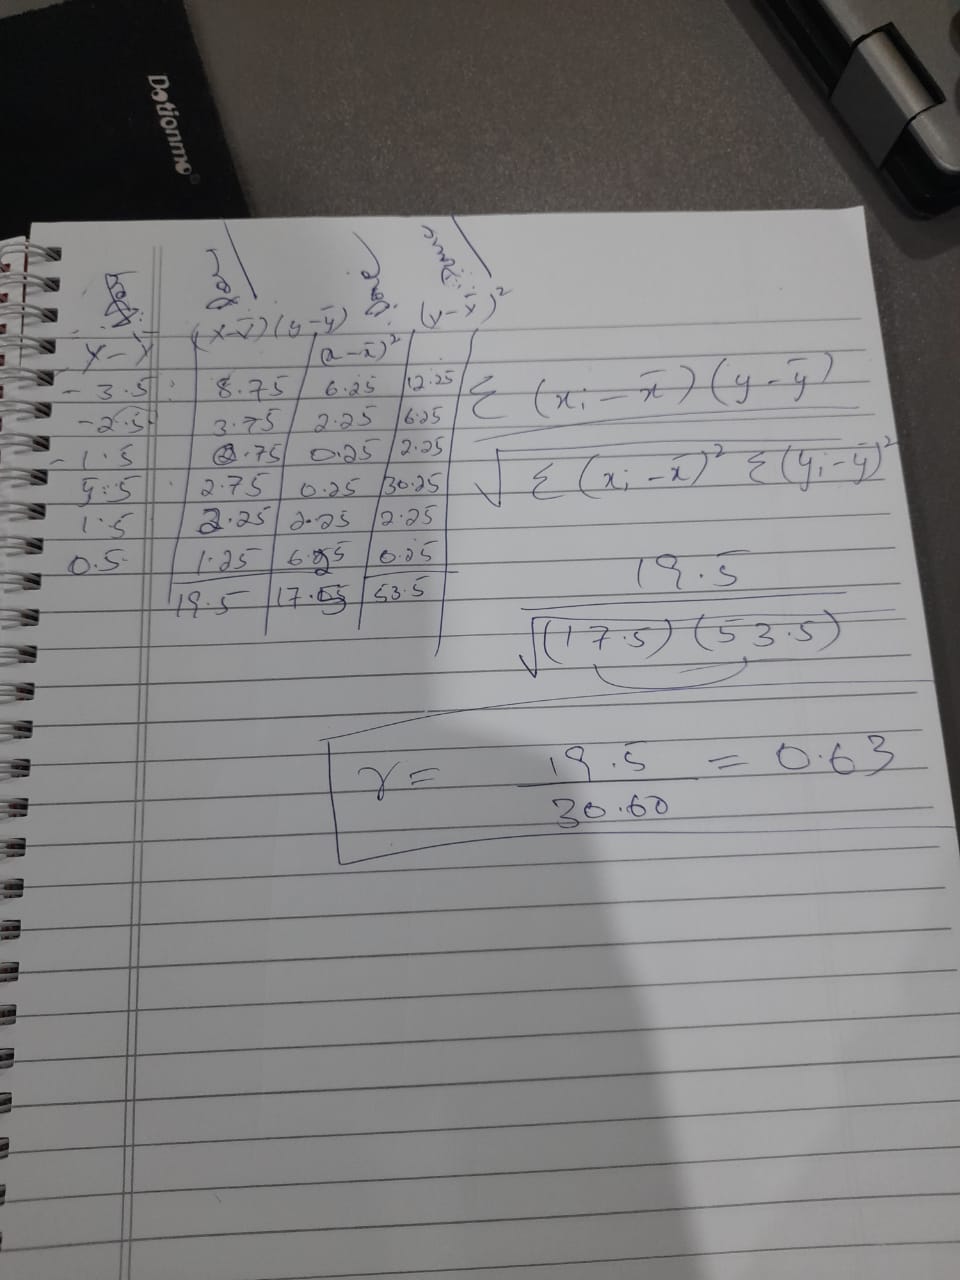 Dotionmo
(x-x̄)(y-ȳ) (y-ȳ)²
y-ȳ (x-x̄)²
-3.5 8.75 6.25 12.25
-2.5 3.75 2.25 6.25
-1.5 0.75 0.25 2.25
5.5 2.75 0.25 30.25
1.5 2.25 2.25 2.25
0.5 1.25 6.25 0.25
19.5 17.5 53.5
Σ (xi - x̄)(y - ȳ)
√Σ (xi - x̄)² Σ (yi - ȳ)²
19.5
√(17.5) (53.5)
r = 19.5 = 0.63
30.60